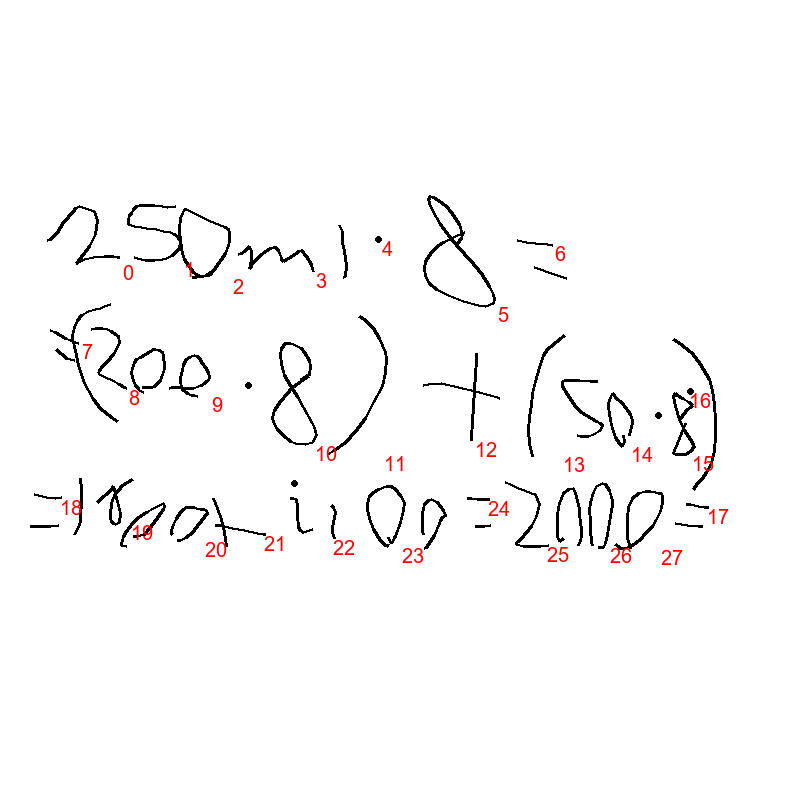 250ml · 8 =
= (200 · 8) + (50 · 8)
= 1600 + 400 = 2000 =
0 1 2 3 4 5 6
7 8 9 10 11 12 13 14 15 16
17 18 19 20 21 22 23 24 25 26 27